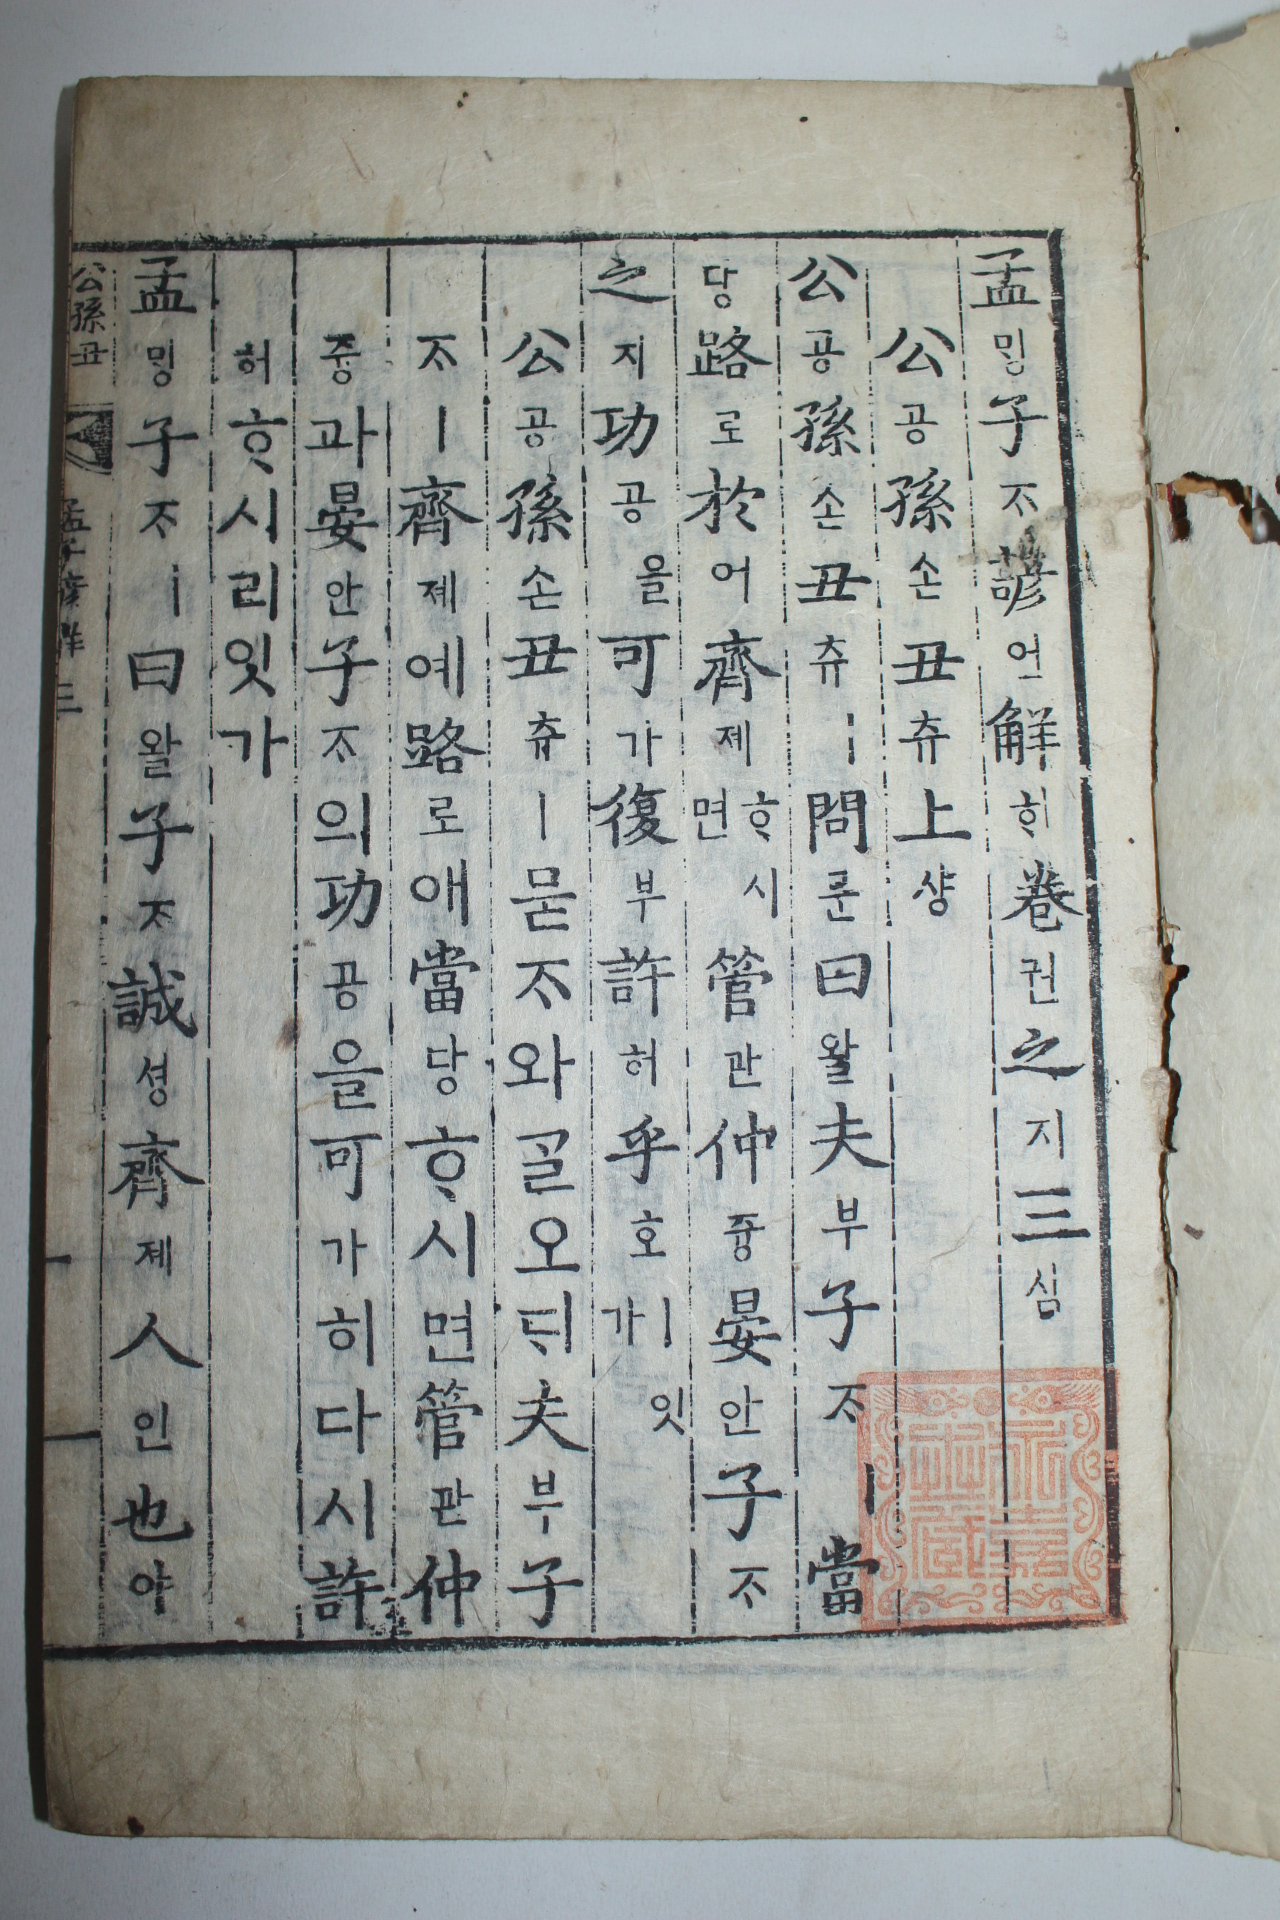 孟ᄆᆡᆼ子ᄌᆞ諺언解ᄒᆡ卷권之지三삼
公공孫손丑츄上샹
公공孫손丑츄ㅣ問문曰왈夫부子ᄌᆞㅣ當
당路로於어齊졔ᄒᆞ시면管관仲즁晏안子ᄌᆞ
之지功공을可가復부許허乎호ㅣ잇가
公공孫손丑츄ㅣ묻ᄌᆞ와ᄀᆞᆯ오ᄃᆡ夫부子
ᄌᆞㅣ齊졔예路로애當당ᄒᆞ시면管관仲
즁과晏안子ᄌᆞ의功공을可가히다시許
허ᄒᆞ시리잇가
孟ᄆᆡᆼ子ᄌᆞㅣ曰왈子ᄌᆞ誠셩齊졔人인也야
公孫丑 孟子諺解 三